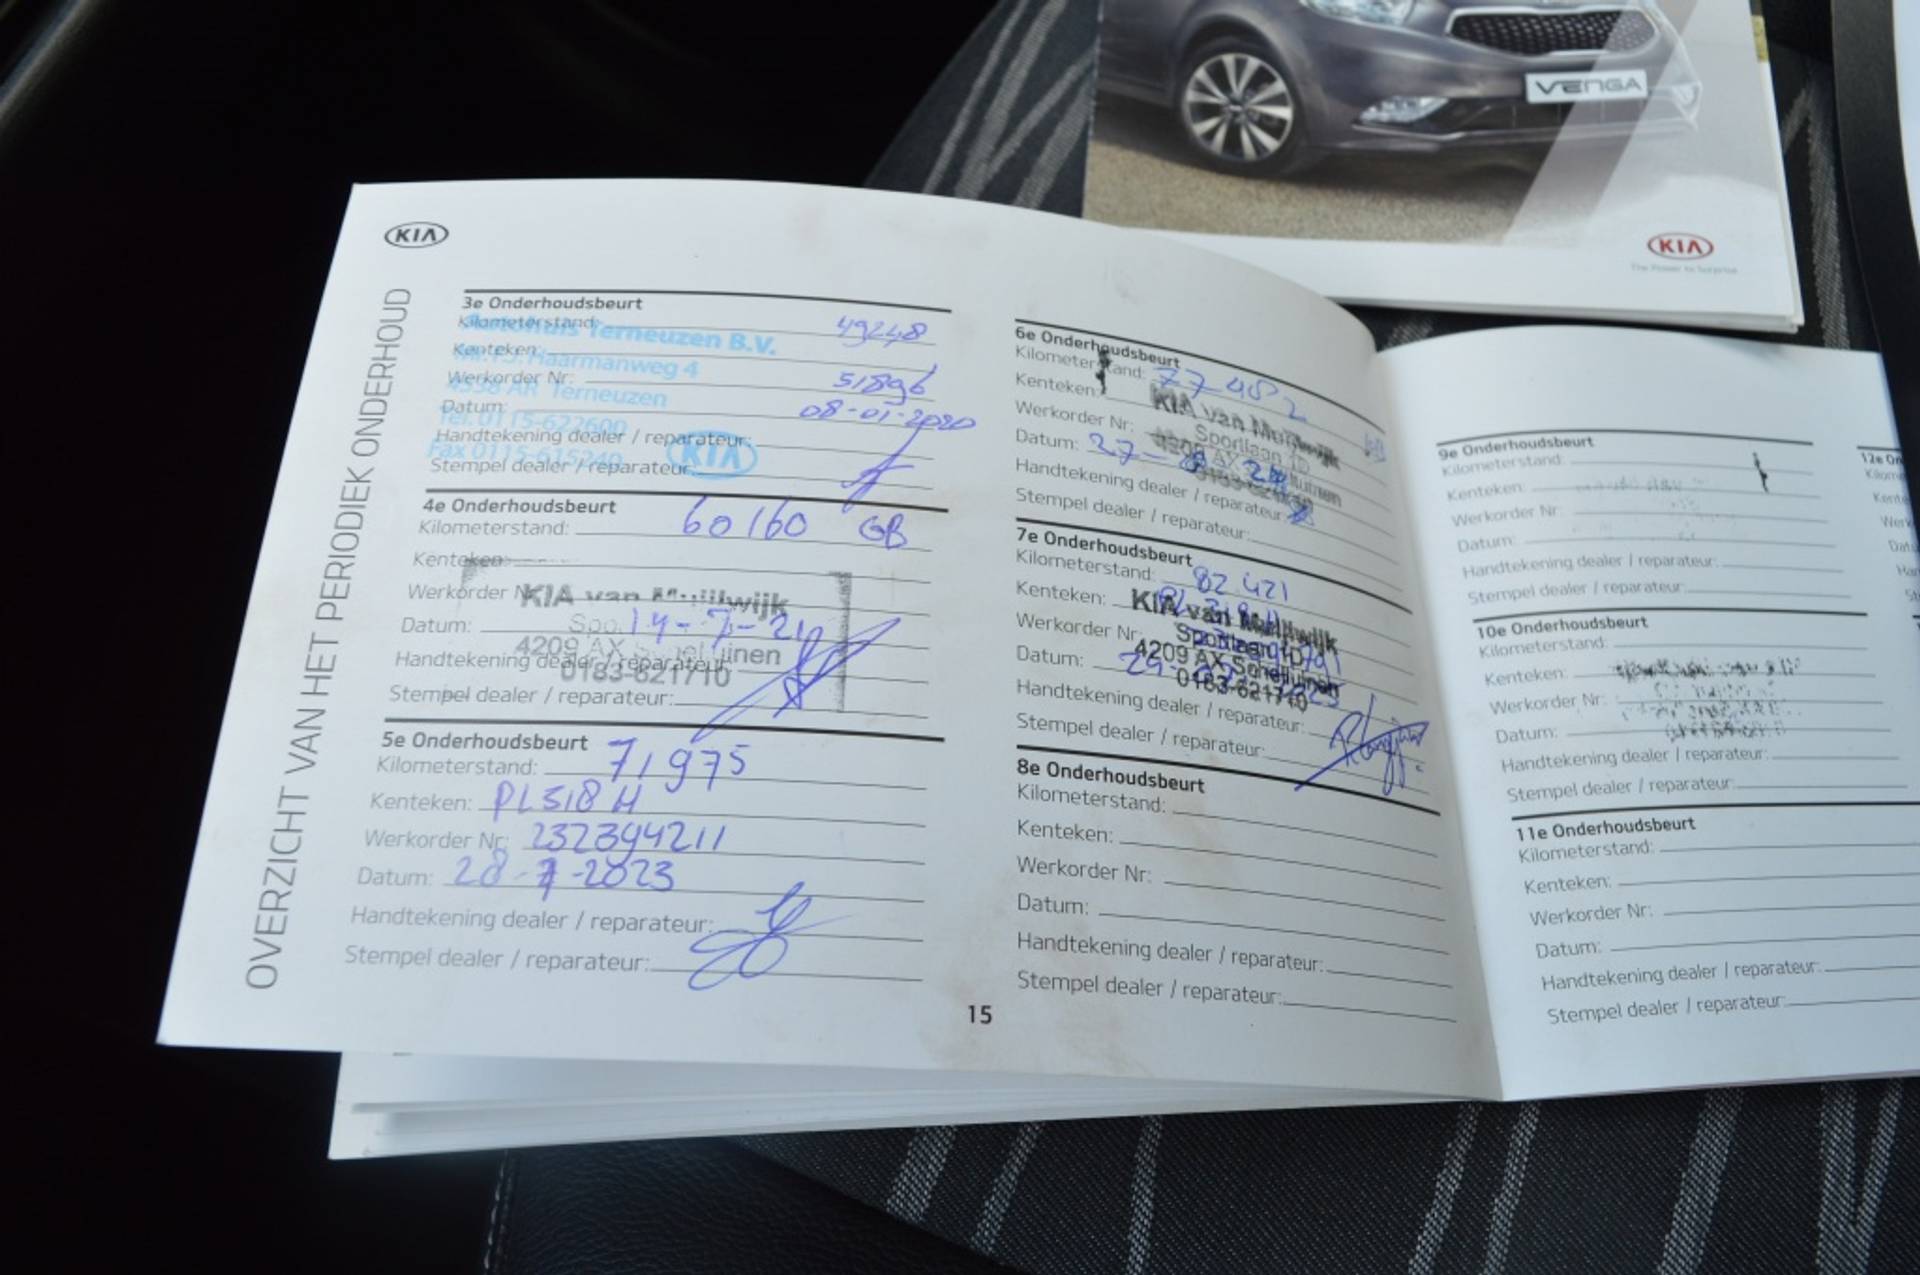 VENGA
KIA
The Power to Surprise
KIA
OVERZICHT VAN HET PERIODIEK ONDERHOUD
3e Onderhoudsbeurt
Kilometerstand: 49248
Autohuis Terneuzen B.V.
Kenteken:
Haarmanweg 4
Werkorder Nr: 51896
4538 AR Terneuzen
Datum: 08-01-2020
Tel. 0115-622600
Handtekening dealer / reparateur:
Fax 0115-615240
KIA
Stempel dealer / reparateur:
4e Onderhoudsbeurt
Kilometerstand: 60160 GB
Kenteken:
Werkorder Nr
KIA van Muijlwijk
Datum: 14-7-21
4209 AX Schelluinen
Handtekening dealer / reparateur:
0183-621710
Stempel dealer / reparateur:
5e Onderhoudsbeurt
Kilometerstand: 71975
Kenteken: PL318H
Werkorder Nr: 232394211
Datum: 28-7-2023
Handtekening dealer / reparateur:
Stempel dealer / reparateur:
15
6e Onderhoudsbeurt
Kilometerstand: 77482
Kenteken:
KIA van Muijlwijk
Werkorder Nr:
Sportlaan 1D
Datum: 27-
4209 AX
Handtekening dealer / reparateur:
Stempel dealer / reparateur:
7e Onderhoudsbeurt
Kilometerstand: 82.421
Kenteken:
KIA van Muijlwijk
Werkorder Nr:
Sportlaan 1D
4209 AX Schelluinen
Datum: 29-
0183-621710
Handtekening dealer / reparateur:
Stempel dealer / reparateur:
8e Onderhoudsbeurt
Kilometerstand:
Kenteken:
Werkorder Nr:
Datum:
Handtekening dealer / reparateur:
Stempel dealer / reparateur:
9e Onderhoudsbeurt
Kilometerstand:
Kenteken:
Werkorder Nr:
Datum:
Handtekening dealer / reparateur:
Stempel dealer / reparateur:
10e Onderhoudsbeurt
Kilometerstand:
Kenteken:
Werkorder Nr:
Datum:
Handtekening dealer / reparateur:
Stempel dealer / reparateur:
11e Onderhoudsbeurt
Kilometerstand:
Kenteken:
Werkorder Nr:
Datum:
Handtekening dealer / reparateur:
Stempel dealer / reparateur:
12e On
Kilome
Kente
Werk
Datu
Han
St